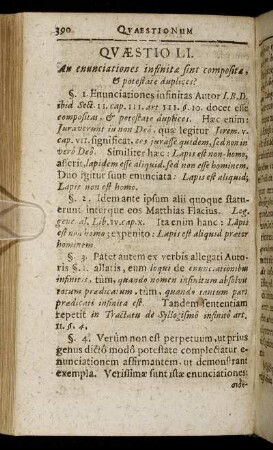 390 QVAESTIONUM
QVÆSTIO LI.
An enunciationes infinitæ sint compositæ,
& potestate duplices?
§. 1. Enunciationes infinitas Autor I.B.D.
ibid Sect. II. cap. III. art III. §. 10. docet esse
compositas, & potestate duplices. Hæc enim:
Juraverunt in non Deo, quæ legitur Jerem. v.
cap. vii. significat, eos jurasse quidem, sed non in
vero Deo. Similiter hæc: Lapis est non-homo,
asserit, lapidem esse aliquid, sed non esse hominem.
Duo igitur sunt enunciata: Lapis est aliquid;
Lapis non est homo.
§. 2. Idem ante ipsum alii quoque statuerunt
interque eos Matthias Flacius. Log.
gene. al. Lib. iv. cap. x. Ita enim hanc: Lapis
est non homo; expenito: Lapis est aliquid præter
hominem.
§. 3. Patet autem ex verbis allegati Autoris
§. 1. allatis, eum loqui de enunciationibus
infinitis, tùm, quando nomen infinitum absolvit
totum prædicatum, tùm, quando tantum pars
prædicati infinita est. Tandem sententiam
repetit in Tractatu de Syllogismo infinito art.
II. §. 4.
§. 4. Verùm non est perpetuum, ut prius
genus dicto modo potestate complectatur enunciationem
affirmantem, ut demonstrant
exempla. Verissimæ sunt istæ enunciationes: